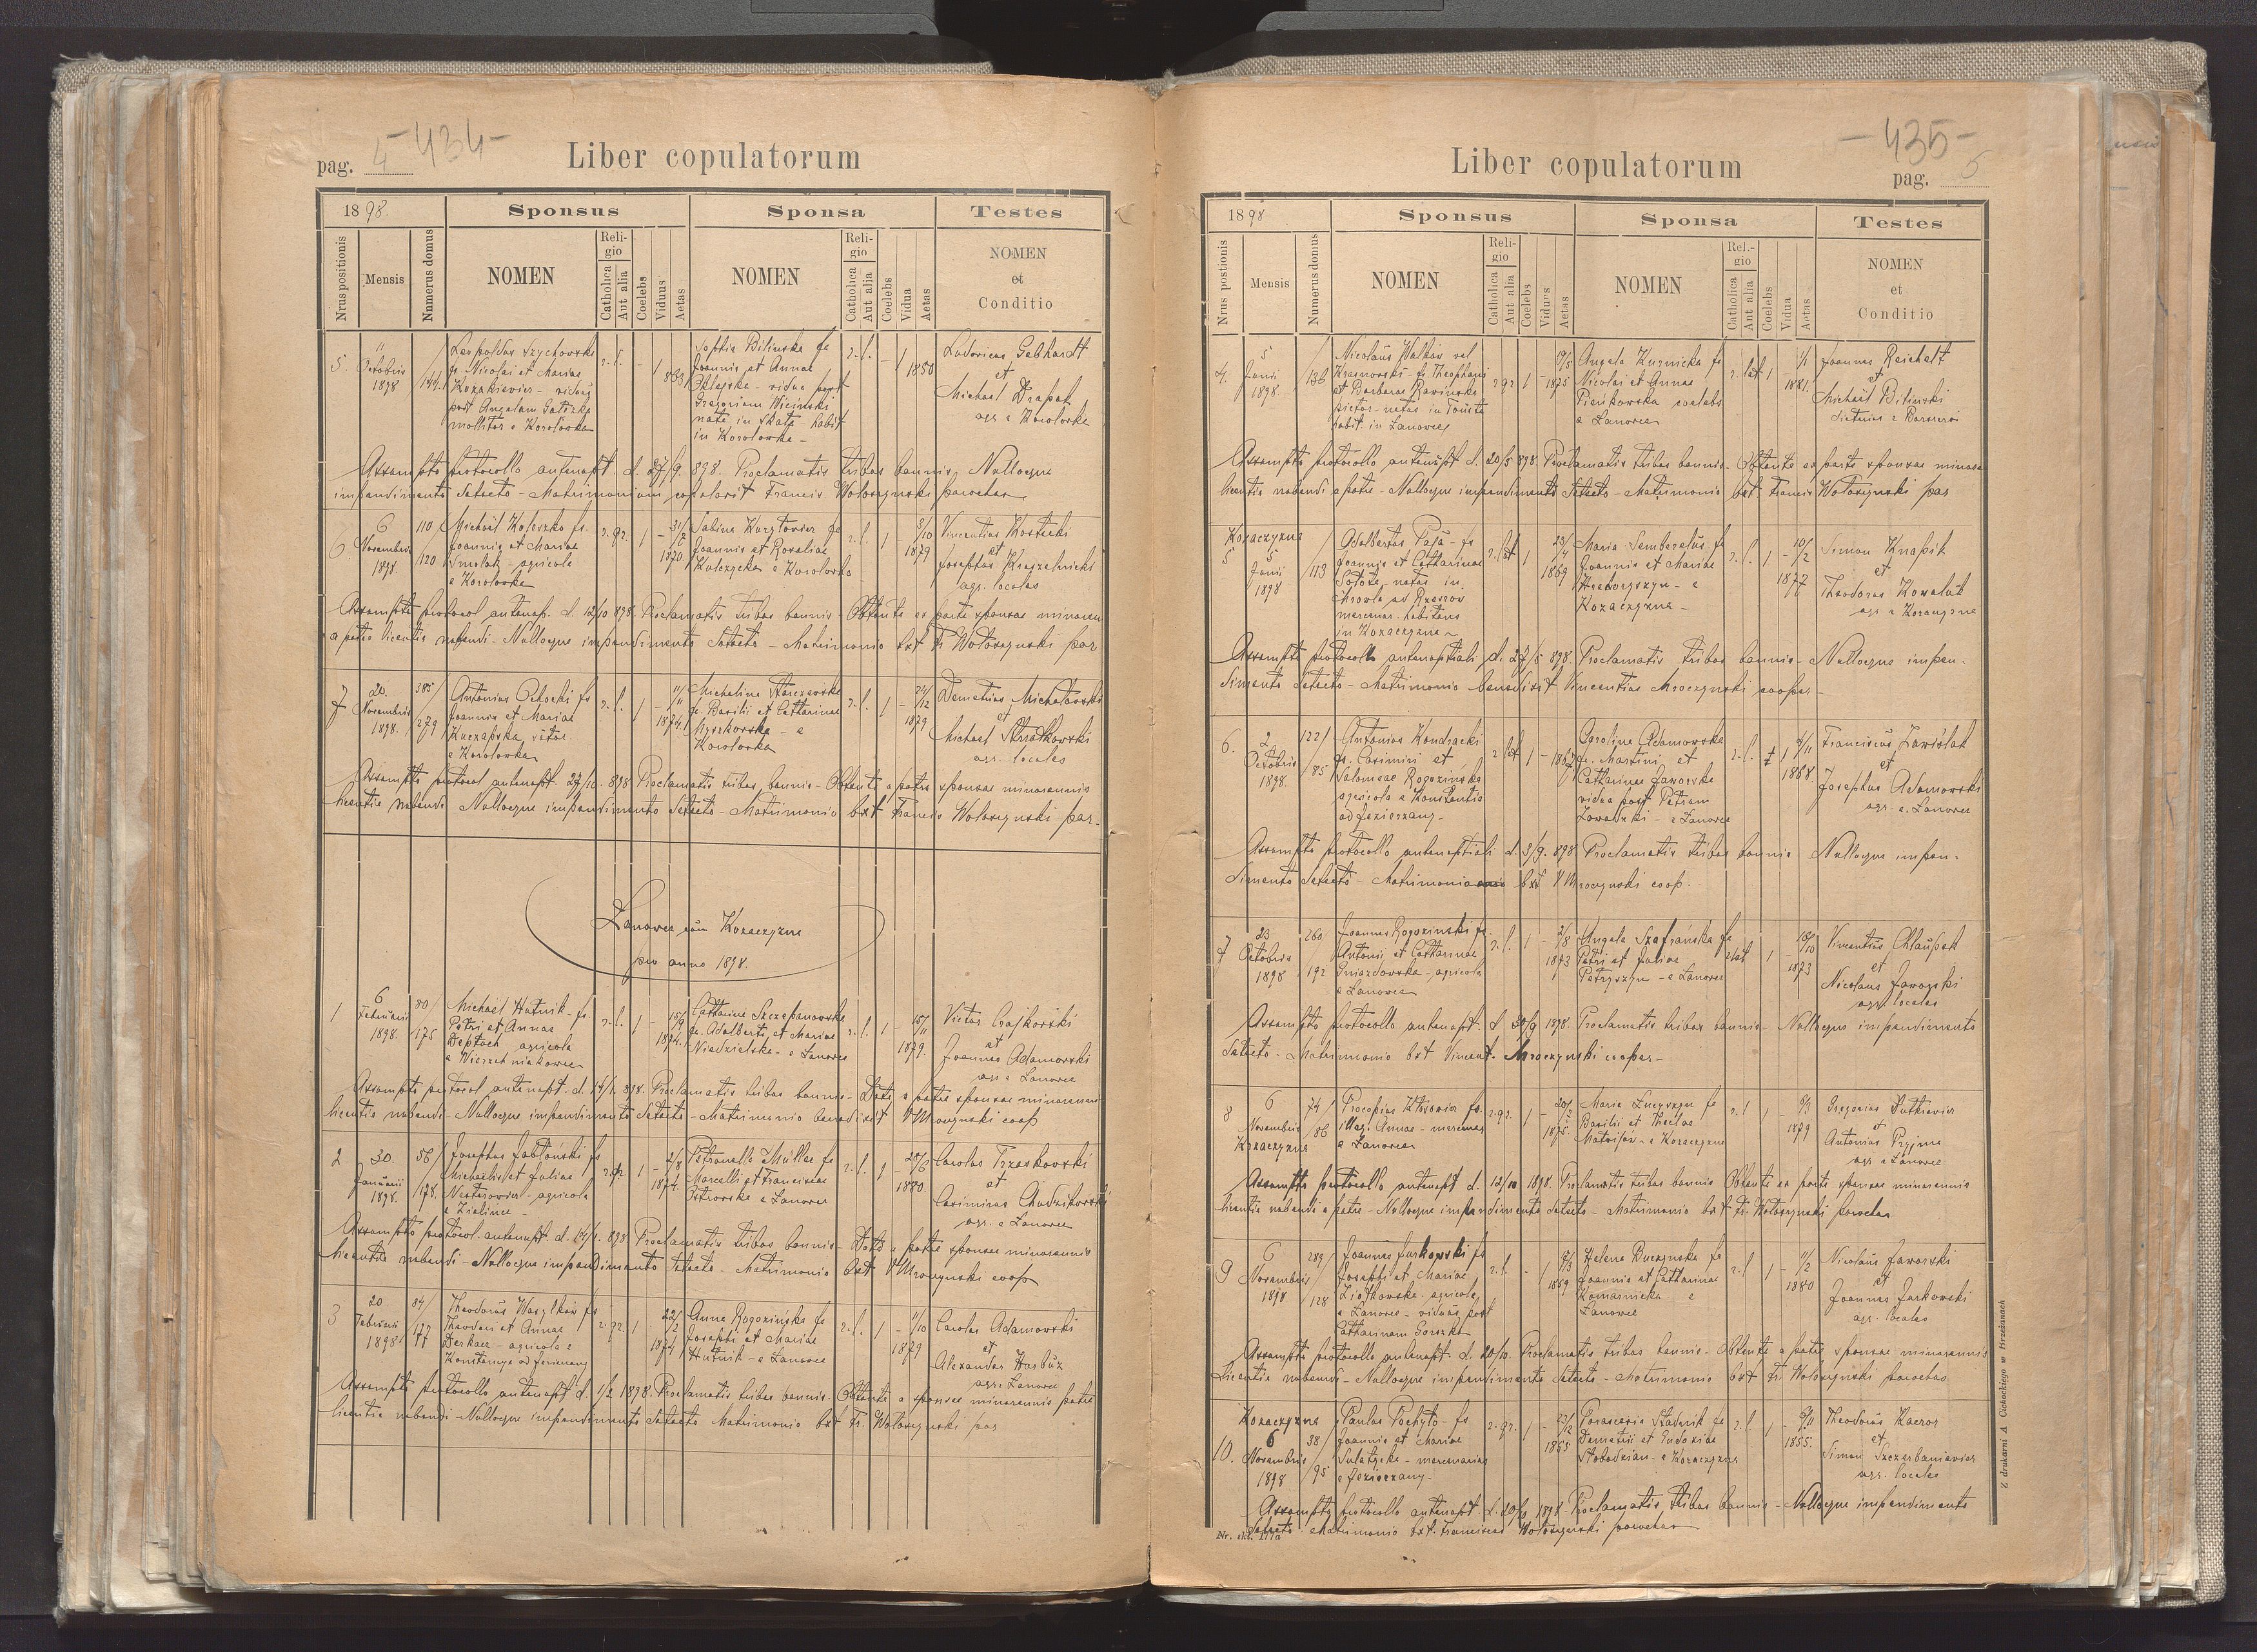 -434-
pag. 4
Liber copulatorum
1898.
Sponsus
Sponsa
Testes
Nrus positionis
Mensis
Numerus domus
NOMEN
Religio
Catholica
Aut alia
Coelebs
Viduus
Aetas
NOMEN
Religio
Catholica
Aut alia
Coelebs
Vidua
Aetas
NOMEN
et
Conditio
5.
11
Octobris
1898
144
Leopoldus Szychowski
fs. Nicolai et Mariae
Kozakiewicz - viduus
post Angelam
e Korolowka
r. l.
1
863
Sophia Bilinska fa
Joannis et Annae
- vidua post
Gregorium Wicinski
nata in Skala habit
in Korolowka -
r. l. - 1
1850
Ludovicus Gebhardt
et
Michael Drapak
agr. e Korolowka
Assumpto protocollo antenupt. d. 27/9. 898. Proclamatis tribus bannis, Nulloque
impendimento detecto - Matrimonium Francis Woloszynski parochus
6.
6
Novembris
1898
110
120
Michael Koleszko fs.
Joannis et Mariae
Smolak - agricola
e Korolowka
r. gr. 1 -
31/7
1870
Sabina Kurytowicz fa
Joannis et Rosaliae
Kulczycka e Korolowka
r. l. 1 -
3/10
1879
Vincentius Kostecki
et
Josephus
agr. locales
Assumpto protocol antenup. d. 12/10 898. Proclamatis tribus bannis - Obtenta ex parte sponsae minoren
a patre licentia nubendi - Nulloque impendimento detecto - Matrimonio bxt Fr Woloszynski par
7
20.
Novembris
1898.
385
279
Antonius Cichocki fs
Joannis et Mariae
e Korolowka
r. l. 1 -
11/11
1874.
Michalina Starczewska
fa. Basilii et Catharinae
Myszkowska - e
Korolowka
r. l. 1 -
24/12
1879
Demetrius Michalowski
et
Michael
agr. locales
Assumpto protocol antenupt. 27/10. 898 Proclamatis tribus bannis - Obtenta a patre sponsae minorennis
licentia nubendi Nulloque impendimento detecto - Matrimonio bxt Francis Woloszynski par -
Lanowce cum Kozaczyzna
pro anno 1898.
1
6
Februarii
1898.
80/
175
Michael Hutnik - fs.
Petri et Annae
agricola
e Wierzchniakowce
r. l. 1 -
15/9
1874.
Catharina Szczepanowska
fa. Adalberti et Mariae
Niedzielska - e Lanowce
r. l. 1 -
15/11
1879.
Victor Czajkowski
et
Joannes Adamowski
agr. e Lanowce
Assumpto protocol antenupt. d. 14/1. 898. Proclamatis tribus bannis - Data a patre sponsae minorennis
licentia nubendi - Nulloque impendimento detecto - Matrimonio benedixit V Mroczynski coop
2
30.
Januarii
1898.
56/
178.
Josephus Jablonski fs
Michaelis et Juliae
Nesterowicz - agricola
e Zielince -
r. gr. 1 -
2/8
1874.
Petronella Müller fa
Marcelli et Franciscae
Ostrowska e Lanowce
r. l. 1 -
20/6
1880.
Carolus Trzaskowski
et
Casimirus
agr. e Lanowce
Assumpto protocol. antenupt. d. 14/1. 898. Proclamatis tribus bannis - Data a patre sponsae minorennis
licentia nubendi - Nulloque impendimento detecto - Matrimonio bxt V Mroczynski coop
3
20
Februarii
1898.
84/
177
Theodorus Wasylkow fs
Theodori et Annae
Derkacz - agricola e
r. gr. 1
22/2
1874
Anna Rogozinska fa
Josephi et Mariae
Hutnik - e Lanowce
r. l. 1 -
11/10
1879
Carolus Adamowski
et
Alexander Harbuz
agr. e Lanowce
Assumpto protocollo antenupt d. 1/2 1898. Proclamatis tribus bannis - Obtenta a sponsae minorennis patre
licentia nubendi - Nulloque impendimento detecto Matrimonio bxt Fr. Wolozynski par
-435-
Liber copulatorum
pag. 5
1898
Sponsus
Sponsa
Testes
Nrus postionis
Mensis
Numerus domus
NOMEN
Religio
Catholica
Aut alia
Coelebs
Viduus
Aetas
NOMEN
Religio
Catholica
Aut alia
Coelebs
Vidua
Aetas
NOMEN
et
Conditio
4.
5
Junii
1898.
136
Nicolaus Walkow vel
Krasnowski fs Theophani
et Barbara Rawinska
pictor - natus in Touste
habit. in Lanowce
r. gr. 1 -
1875
Angela Kurnicka fa
Nicolai et Annae
Pienkowska coelebs
e Lanowce
r. lat 1
1/1
1881.
Joannes Reichelt
et
Michael Bilinski
Assumpto protocollo antenupt d. 20/5 898. Proclamatis tribus bannis - Obtenta ex parte sponsae minore
licentia nubendi a patre - Nulloque impendimento detecto - Matrimonio bxt Francis Wolozynski par
Kozaczyzna
5
5
Junii
1898
113
Adalbertus Paja - fs
Joannis et Catharinae
natus in
ad Rzeszow
mercenar. habitans
in Kozaczyzna -
r. lat 1
23/4
1869
Maria Semberelus fa
Joannis et Mariae
- e
Kozaczyzna -
r. l. 1 -
10/2
1877
Simon Knapik
et
Theodorus Kowaluk
agr. e Kozaczyzna
Assumpto protocollo antenuptiali d. 27/5 898. Proclamatis tribus bannis - Nulloque impen-
dimento detecto - Matrimonio benedixit Vincentius Mroczynski cooper -
6.
2
Octobris
1898.
122/
85
Antonius Kondracki
fs. Casimiri et
Salomeae Rogozinska
agricola e Konstantia
ad Jezierzany -
r. lat 1 -
1867
Carolina Adamowska
fa. Martini et
Catharinae Jaworska
vidua post Petrum
Zawadzki - e Lanowce
r. l. 1
4/11
1868.
Franciscus Zawislak
et
Josephus Adamowski
agr. e. Lanowce
Assumpto protocollo antenuptiali d. 3/9. 898 Proclamatis tribus bannis Nulloque impen-
dimento detecto - Matrimonio bxt V Mroczynski coop.
7
23
Octobris
1898
260
192
Joannes Rogozinski fs.
Antonii et Catharinae
Gniazdowska - agricola
e Lanowce
r. l. 1 -
2/8
1873
Angela Szafranska fa
Petri et Juliae
Petryszyn - e Lanowce
r lat 1 -
18/10
1873
Vincentius Chlaupek
et
Nicolaus Jaworski
agr. locales
Assumpto protocollo antenupt. d 30/9 1898. Proclamatis tribus bannis - Nulloque impendimento
detecto - Matrimonio bxt Vincent. Mroczynski cooper -
8
6
Novembris
Kozaczyzna
74/
86
Procopius fs.
illeg. Annae - mercenar
e Lanowce
r. gr. 1 -
20/2
1875.
Maria fa
Basilii et Theclae
- e Kozaczyzna
r. l 1 -
1879
Gregorius Rutkiewicz
et
Antonius Pryjma
agr. e Lanowce
Assumpto protocollo antenupt d. 12/10 1898. Proclamatis tribus bannis Obtenta ex parte sponsae minorennis
licentia nubendi a patre - Nulloque impendimento detecto - Matrimonio bxt Fr. Wolozynski parochus
9
6
Novembris
1898
289
128
Joannes Jurkowski fs
Josephi et Mariae
Ziolkowska agricola
e Lanowce - viduus post
Catharinam
r. l. - 1
1869
Helena Buczynska fa
Joannis et Catharinae
Komarnicka e
Lanowce
r. l 1 -
11/2
1880
Nicolaus Jaworski
et
Joannes Jurkowski
agr. locales
Assumpto protocollo antenupt. d. 20/10. Proclamatis tribus bannis - Obtenta a patre sponsae minorennis
licentia nubendi - Nulloque impendimento detecto - Matrimonio bxt Fr Wolozynski parochus
Kozaczyzna
10.
6
Novembris
1898
38/
95
Paulus Pochyto - fs
Joannis et Mariae
- mercenarius
e Jezierzany -
r. gr. 1 -
1855
Parascevia Stadnik fa
Demetrii et Eudoxiae
Slobodzian - e Kozaczyzna
r. l. 1 -
1855.
Theodorus Kaczor
et
Simon Szczerbaniewicz
agr. locales
Assumpto protocollo antenupt. d. 20/10 1898. Proclamatis tribus bannis - Nulloque impendimento
detecto - Matrimonio bxt. Franciscus Wolozynski parochus
Z drukarni A Cichockiego w Brzeżanach